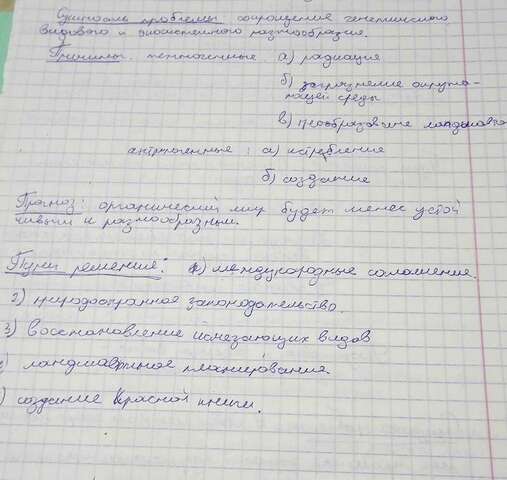 Сущность проблемы сокращения генетического
видового и экосистемного разнообразия.
Причины: техногенные а) радиация
б) загрязнение окружа-
ющей среды
в) преобразование ландшафта
антропогенные : а) истребление
б) создание
Прогноз: органический мир будет менее устой
чивым и разнообразным.
Пути решения: 1) международные соглашения.
2) природоохранное законодательство.
3) восстановление исчезающих видов
) ландшафтное планирование
) создание Красной книги.